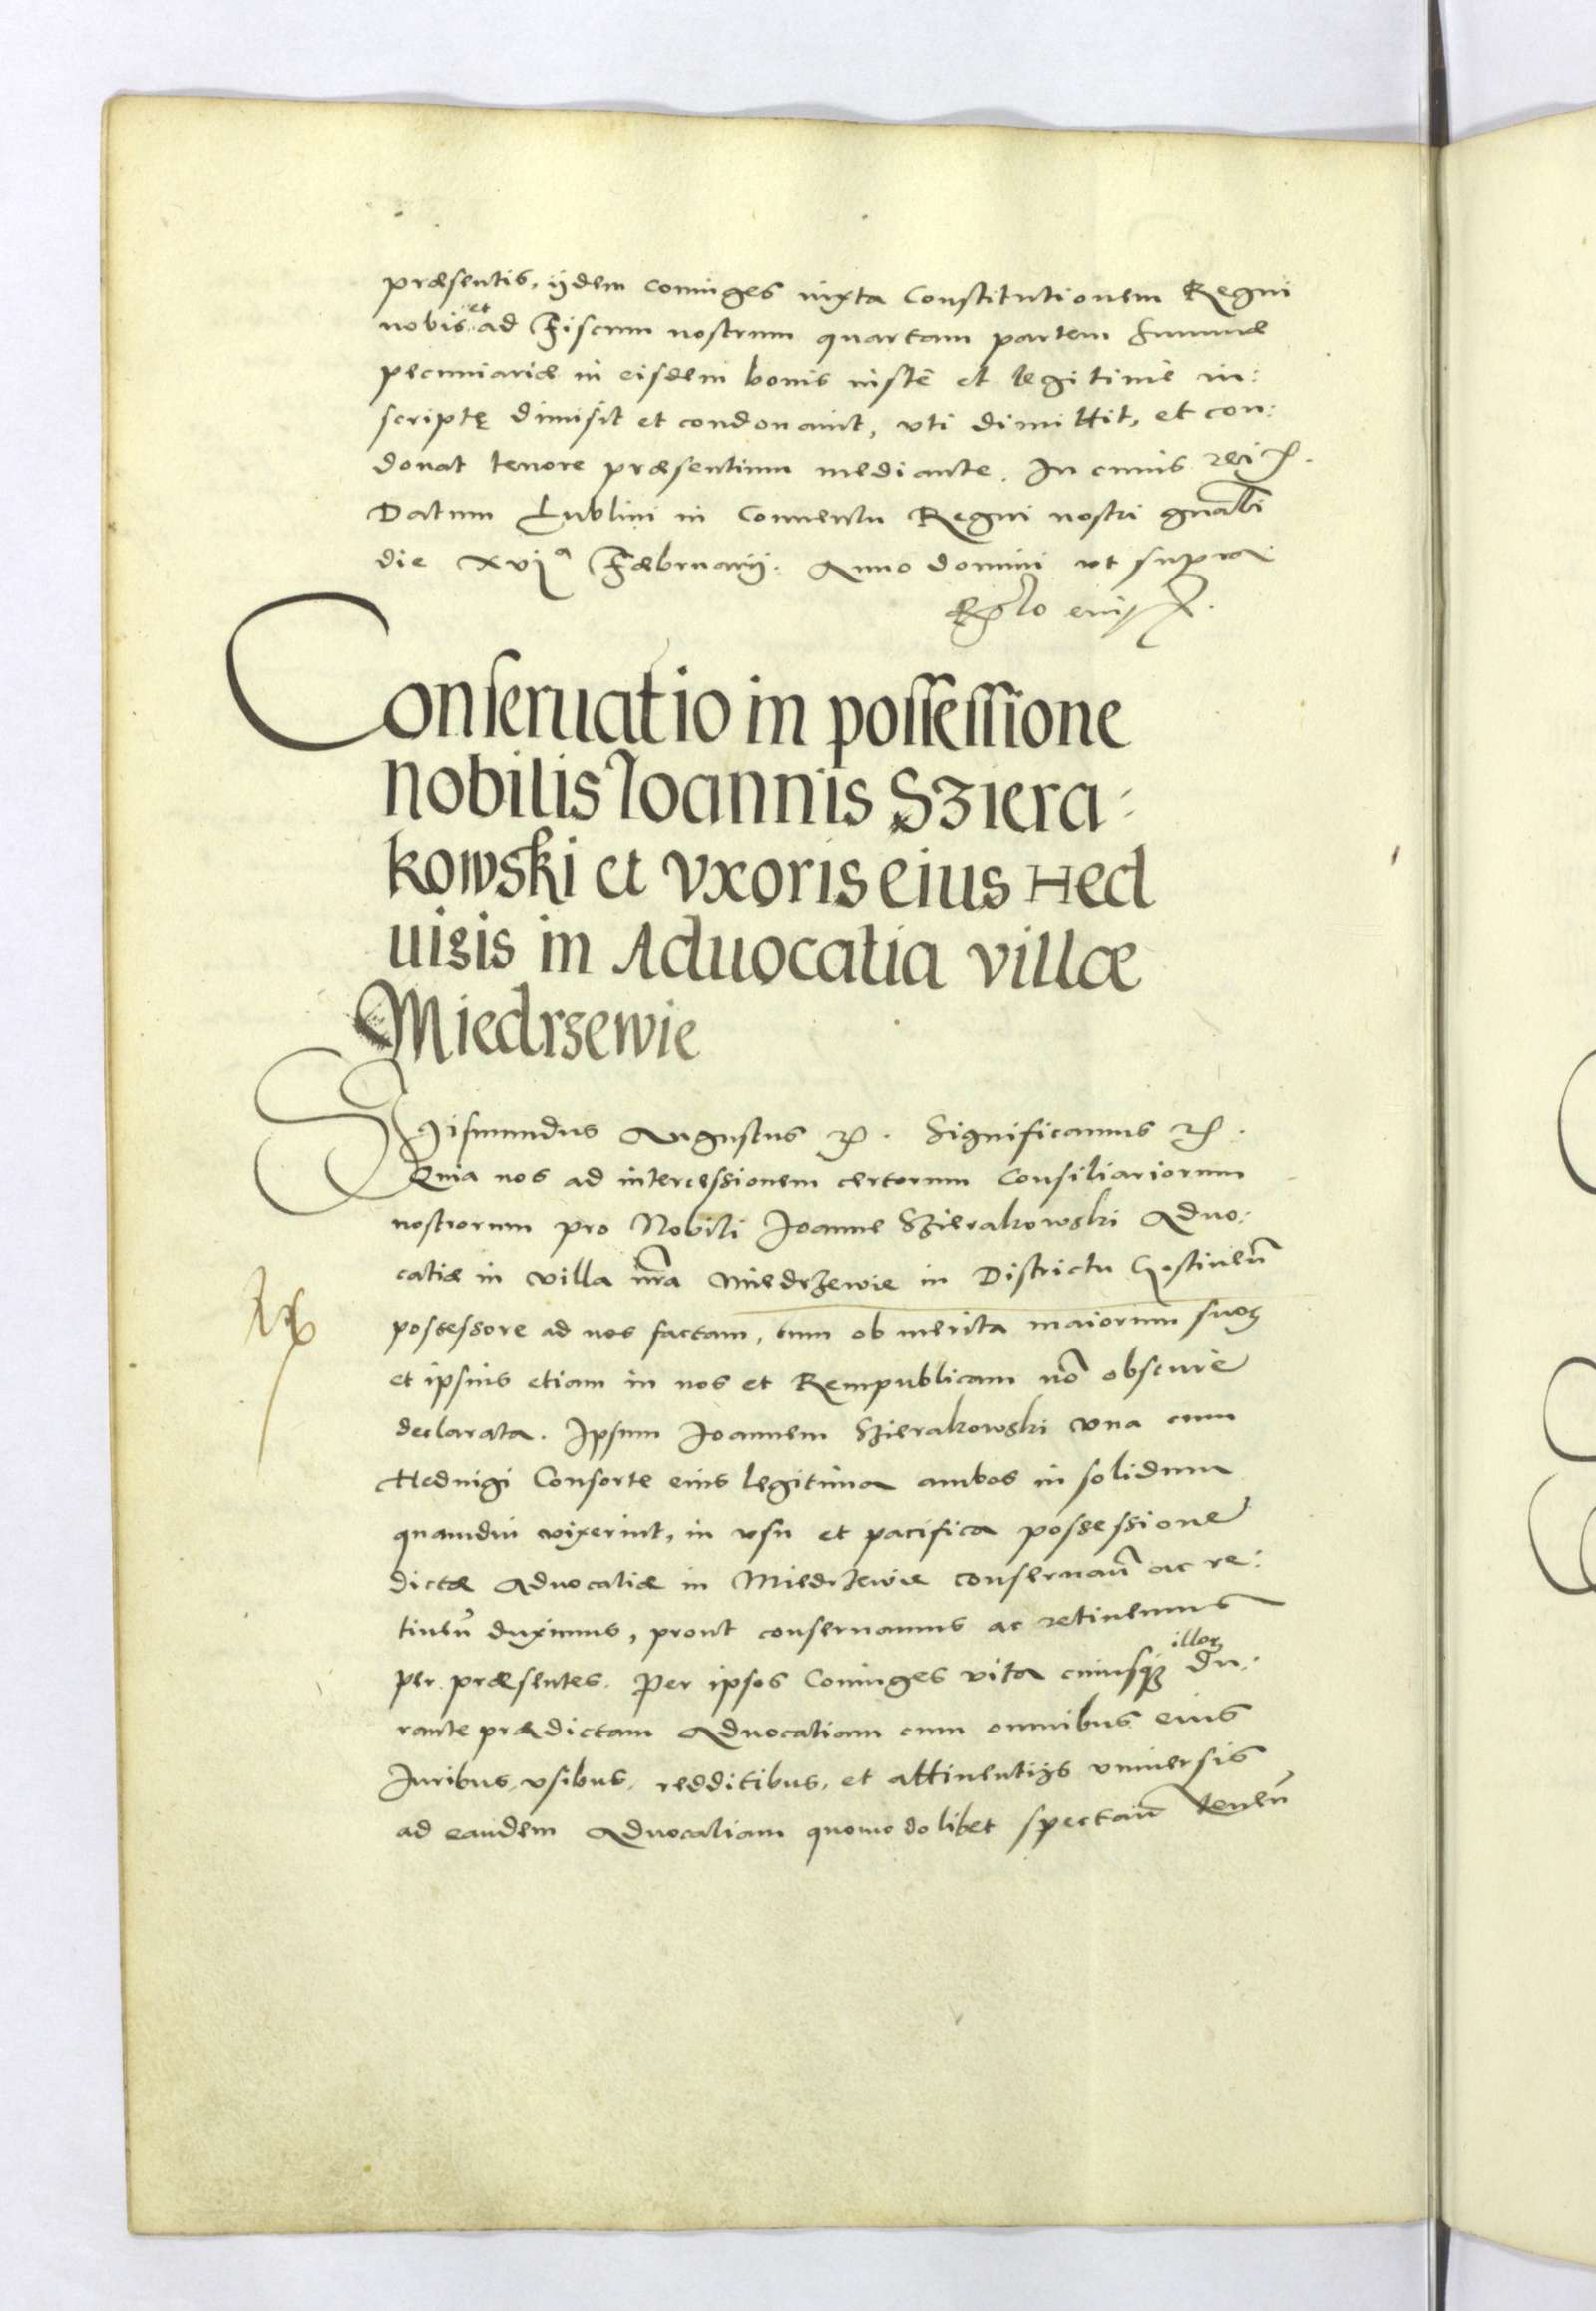 præsentis, ijdem coniuges iuxta Constitutionem Regni
nobis et ad Fiscum nostrum quartam partem Summæ
pecuniariæ in eisdem bonis iustè et legitimè in:
scriptę dimisit et condonauit, vti dimittit, et con:
donat tenore præsentium mediante. In cuius rei
Datum Lublini in Conuentu Regni nostri gnãli
die xvj a Fæbruarij. Anno domini vt supra
Conseruatio in possessione
nobilis Ioannis Sziera:
kowski et vxoris eius Hed
uigis in Aduocatia villæ
Miedrzewie
Sigismundus Augustus Significamus
Quia nos ad intercessionem certorum Consiliariorum
nostrorum pro Nobili Joanne Szierakowski Aduo:
catiæ in villa nr̃a Miedrzewie in Districtu Gostineñ
possessore ad nos factam, tum ob merita maiorum suoꝝ
et ipsius etiam in nos et Rempublicam nõ obscurè
declarata. Ipsum Joannem Szierakowski vna cum
Heduigi Consorte eius legitima ambos in solidum
quamdiu vixerint, in vsu et pacifica possessione
dictæ Aduocatiæ in Miedrzewie conseruañ ac re:
tineñ duximus, prout conseruamus ac retinemus
per præsentes. Per ipsos Coniuges vita cuiusqꝫ illoꝝ du:
rante prædictam Aduocatiam cum omnibus eius
Juribus, vsibus, redditibus, et attinentijs vniuersis
ad eandem Aduocatiam quomodolibet spectañ teneñ